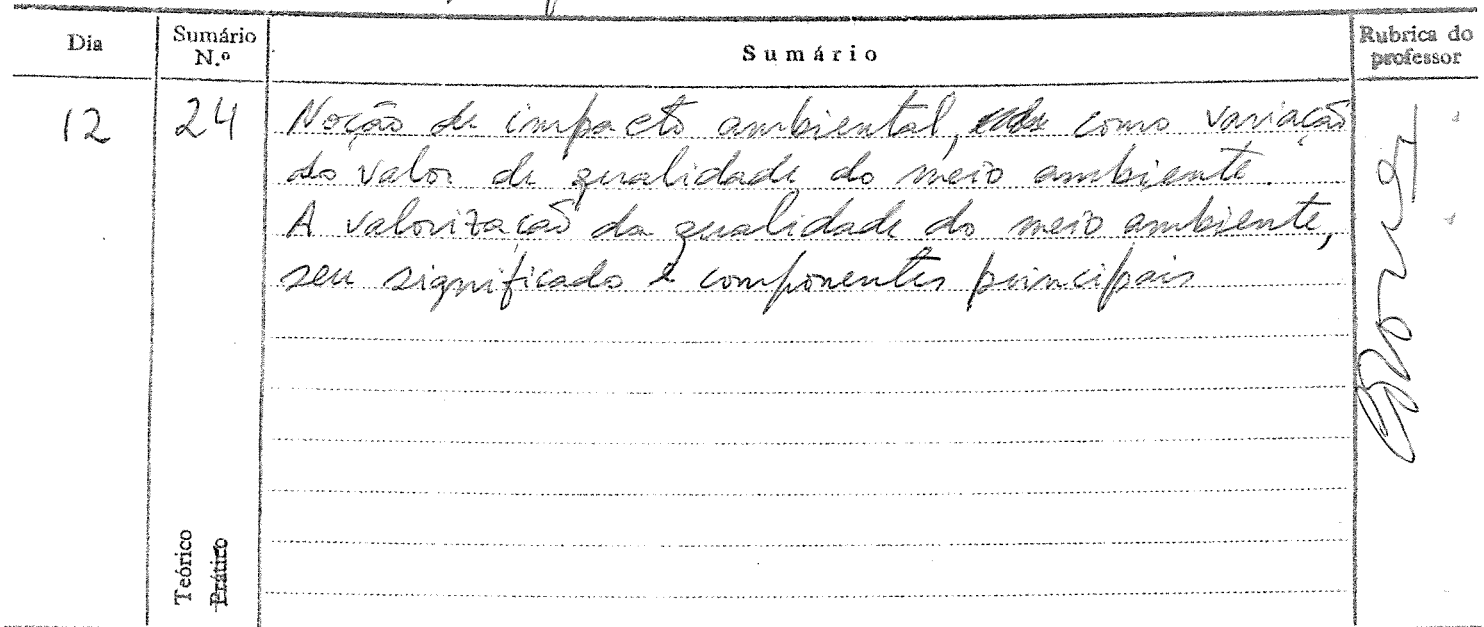 Dia
Sumário N.º
Sumário
Rubrica do professor
12
24
Noção de impacto ambiental, como variação
do valor de qualidade do meio ambiente.
A valorização da qualidade do meio ambiente,
seu significado e componentes principais
Teórico
Prático